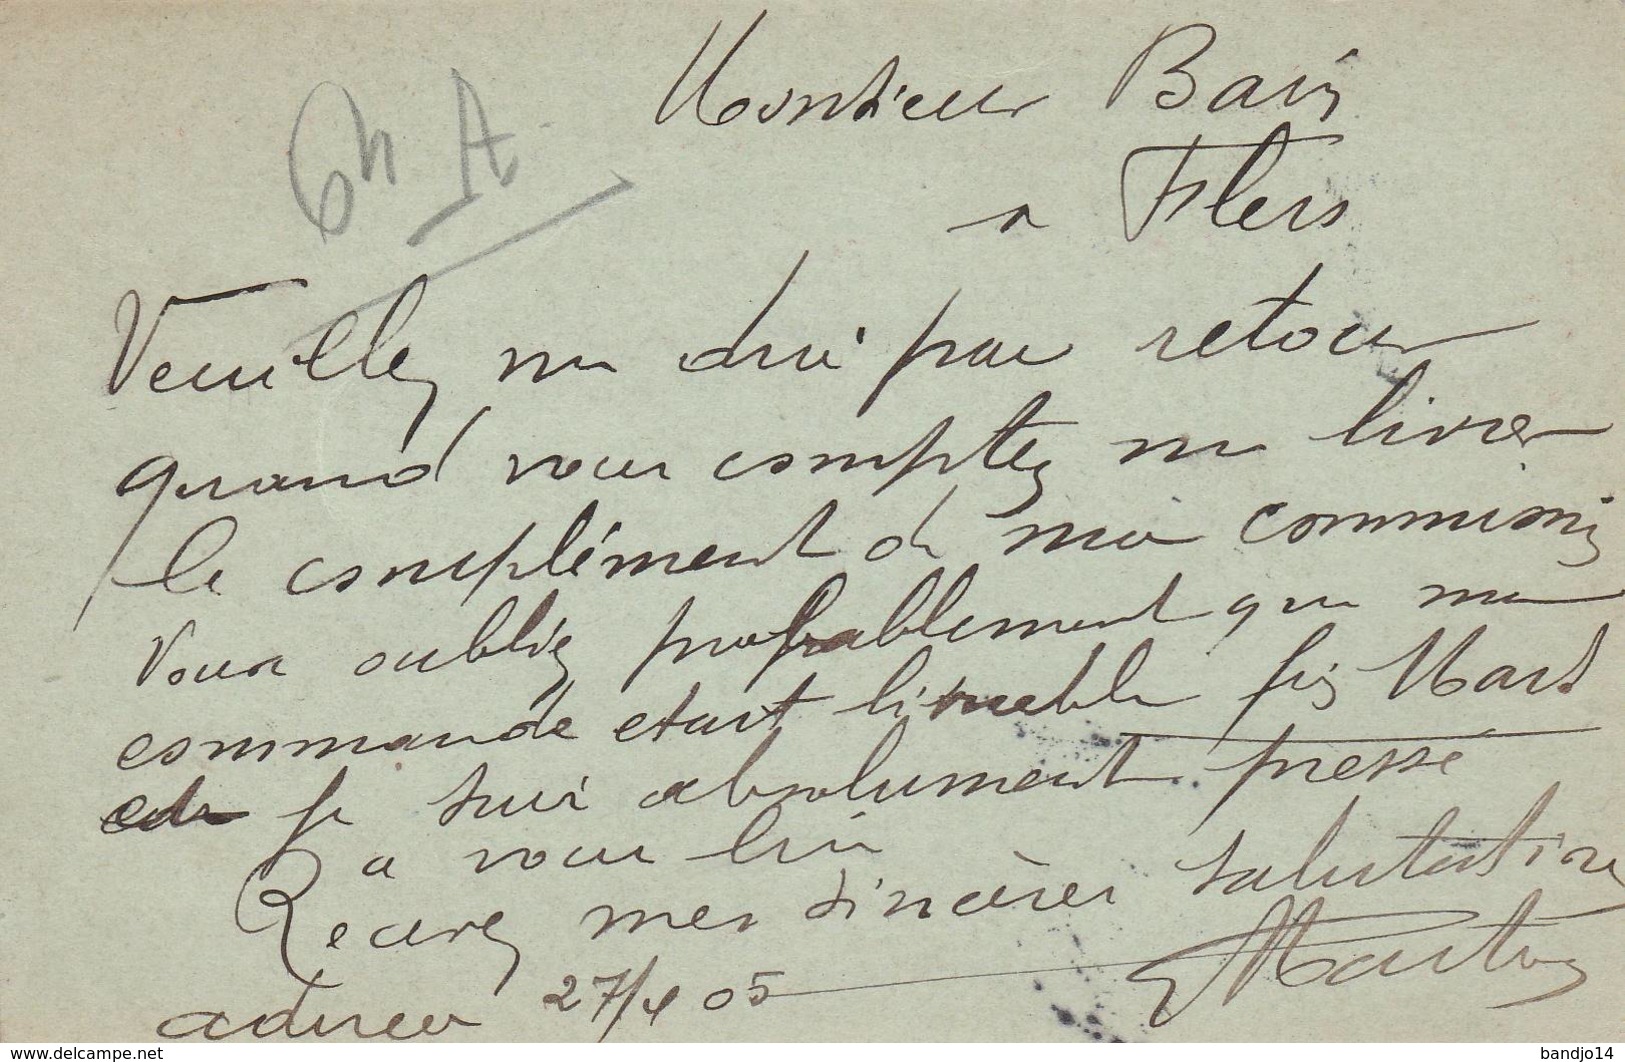 Ch A
Monsieur Bain
a Flers
Veuillez me dire par retour
quand vous comptez me livrer
le complément de ma commission
Vous oubliez probablement que ma
commande etait livrable fin Mars
je suis absolument pressé
a vous lire
Recevez mes sincères salutations
27/4 05 Martin
www.delcampe.net
bandjo14